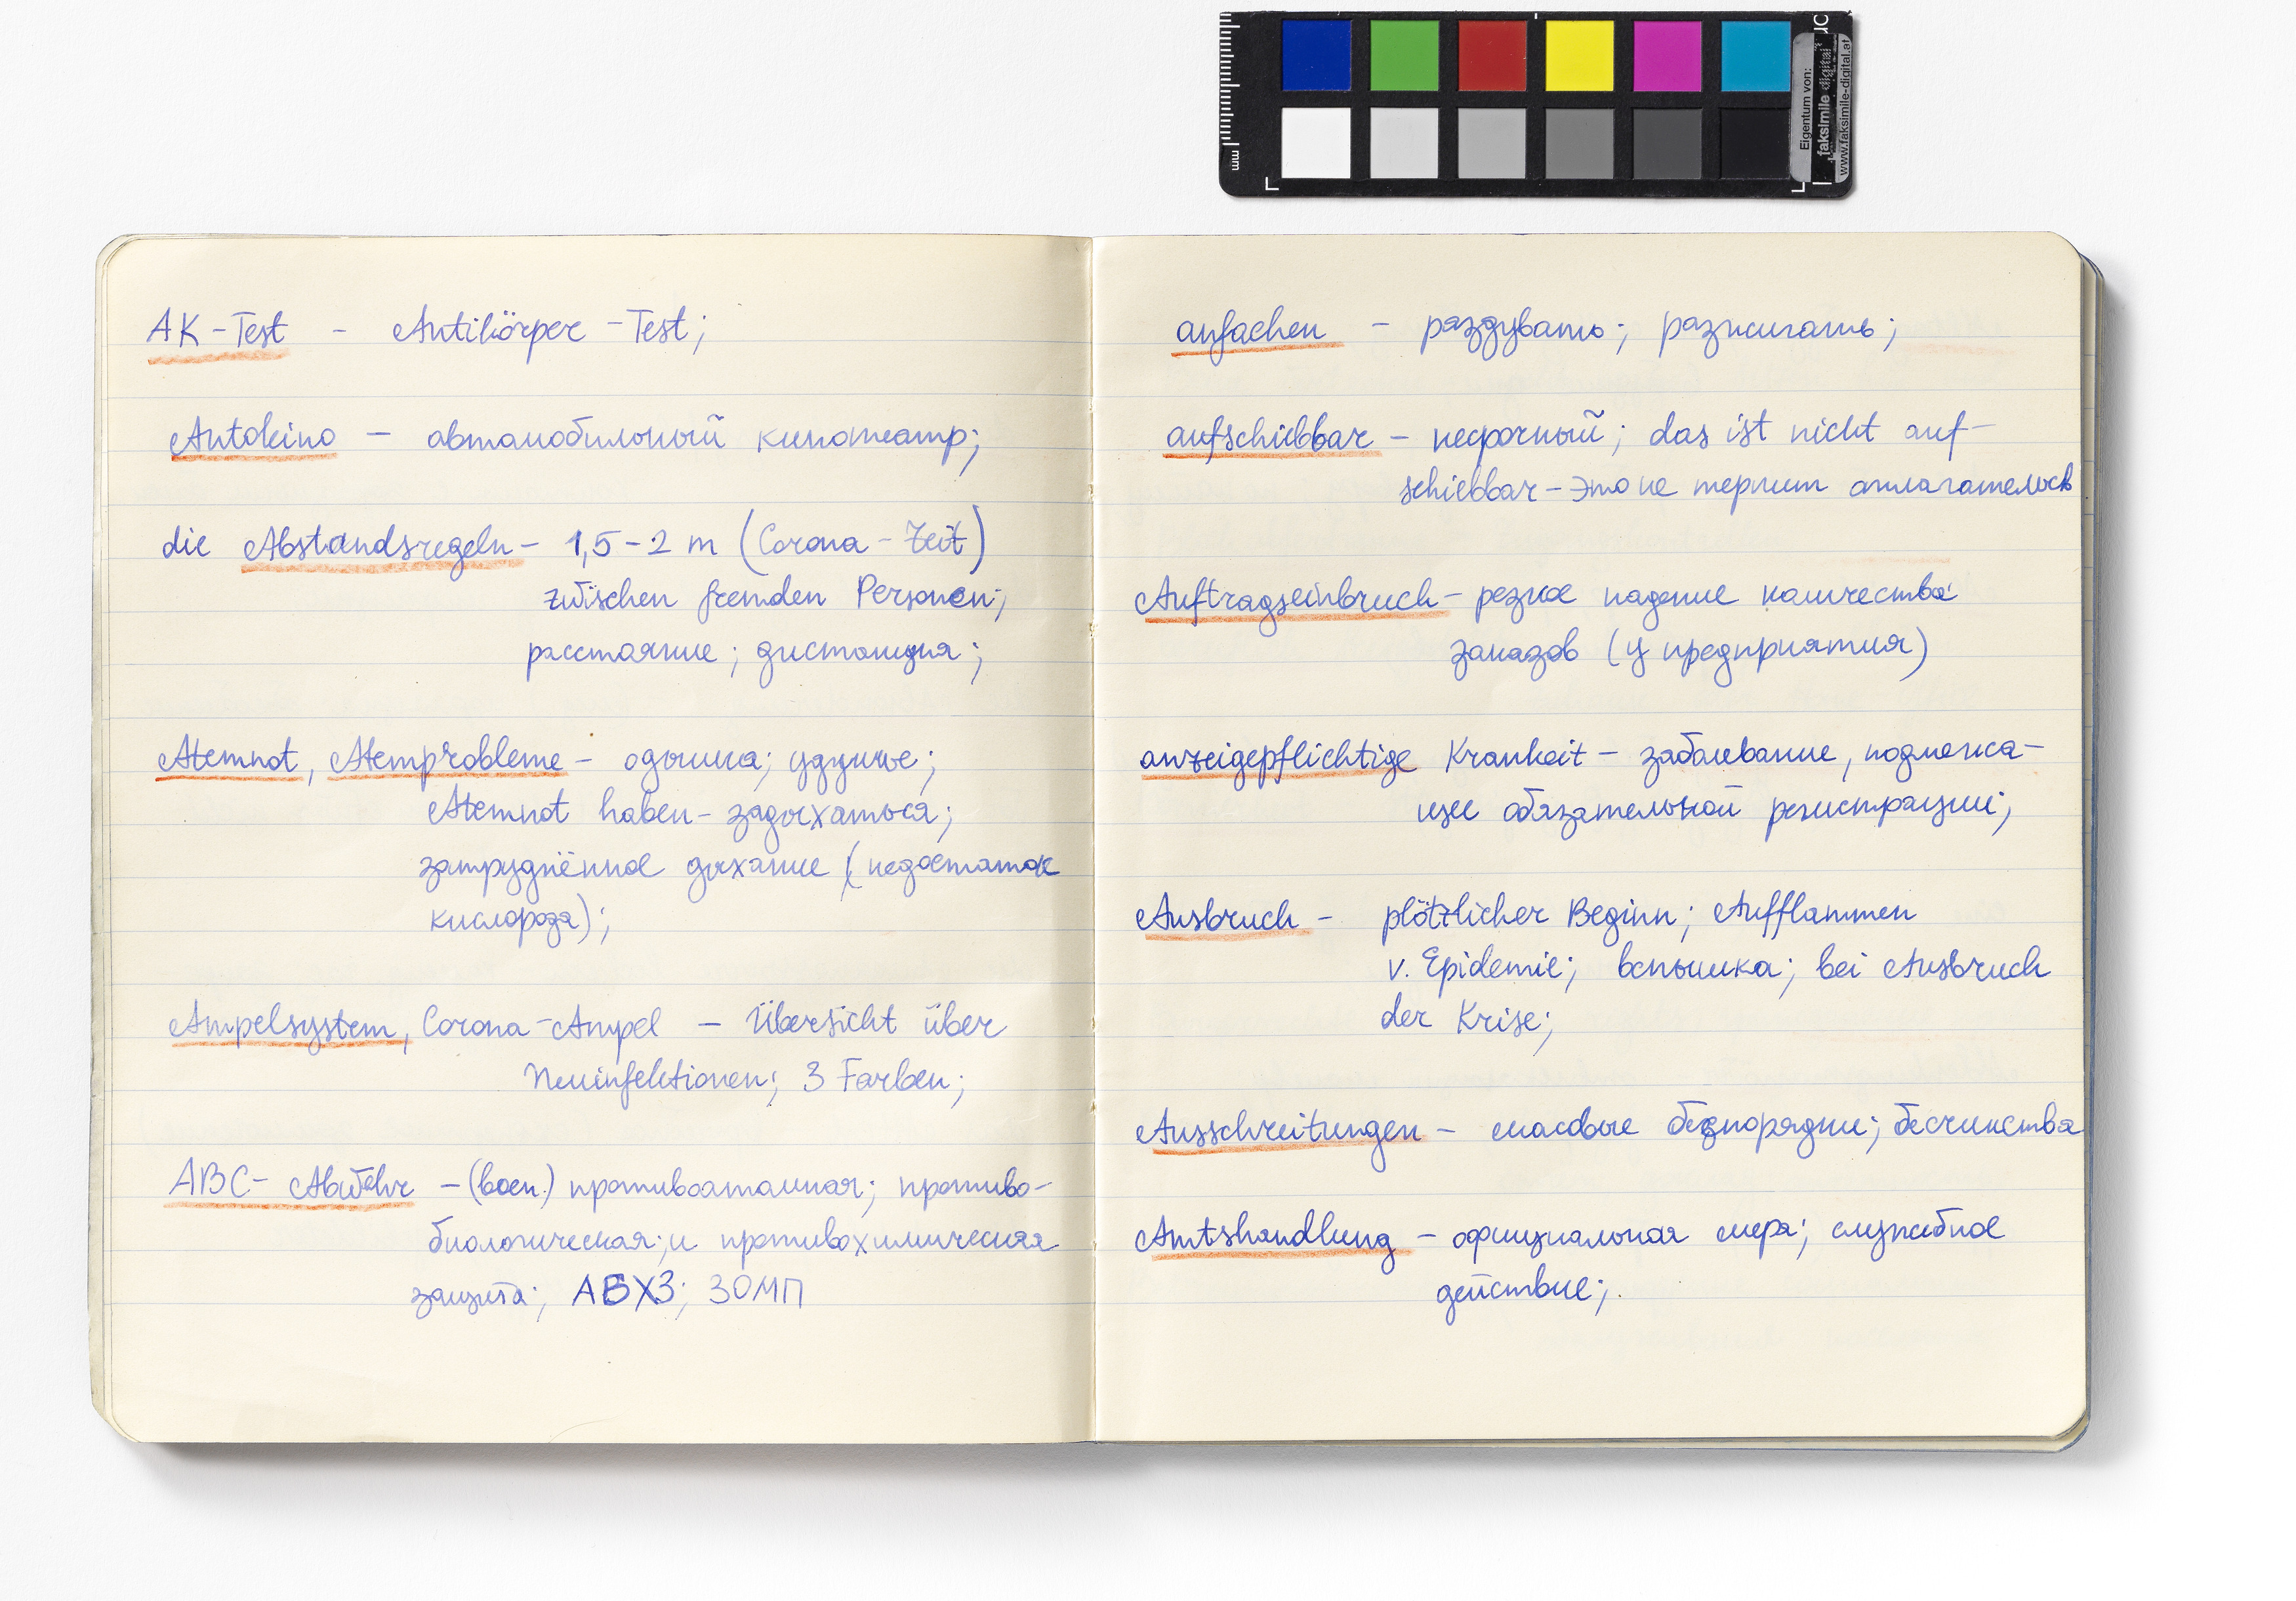 Eigentum von:
faksimile digital
www.faksimile-digital.at
mm
AK-Test - Antikörper-Test;
Autokino - автомобильный кинотеатр;
die Abstandsregeln - 1,5-2 m (Corona-Zeit)
zwischen fremden Personen;
расстояние; дистанция;
Atemnot, Atemprobleme - одышка; удушье;
Atemnot haben - задыхаться;
затруднённое дыхание (недостаток
кислорода);
Ampelsystem, Corona-Ampel - Übersicht über
Neuinfektionen; 3 Farben;
ABC-Abwehr - (воен.) противоатомная; противо-
биологическая; и противохимическая
защита; АБХЗ; ЗОМП
anfachen - раздувать; разжигать;
aufschiebbar - несрочный; das ist nicht auf-
schiebbar - это не терпит отлагательств
Auftragseinbruch - резкое падение количества
заказов (у предприятия)
anzeigepflichtige Krankeit - заболевание, подлежа-
щее обязательной регистрации;
Ausbruch - plötzlicher Beginn; Aufflammen
v. Epidemie; вспышка; bei Ausbruch
der Krise;
Ausschreitungen - массовые беспорядки; бесчинства
Amtshandlung - официальная мера; служебное
действие;